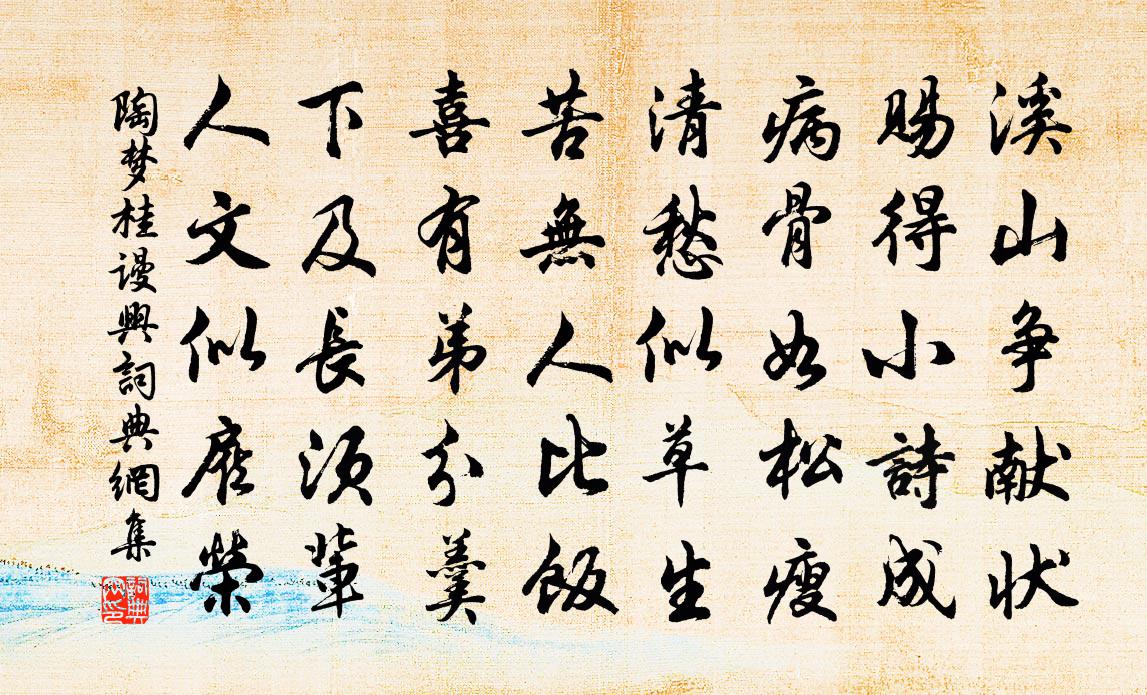 溪山争献状
賜得小詩成
病骨如松瘦
清愁似草生
苦無人比飯
喜有弟分羹
下及長须軰
人文似榮
陶梦桂谩興詞典網集